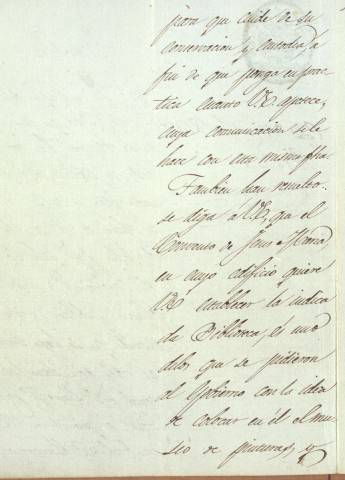 para que cuide de su
conservacion y custodia á
fin de que ponga en prac-
tica cuanto V.E. apetece,
cuya comunicacion se le
hace con esta misma fha.
Tambien han resuelto
se diga á V.E., que el
Convento de Jesus y Maria
en cuyo edificio quiere
V.E. establecer la indica
da Biblioteca, es uno
delos que se pidieron
al Gobierno con la idea
de colocar en él el mu-
seo de pinturas, y